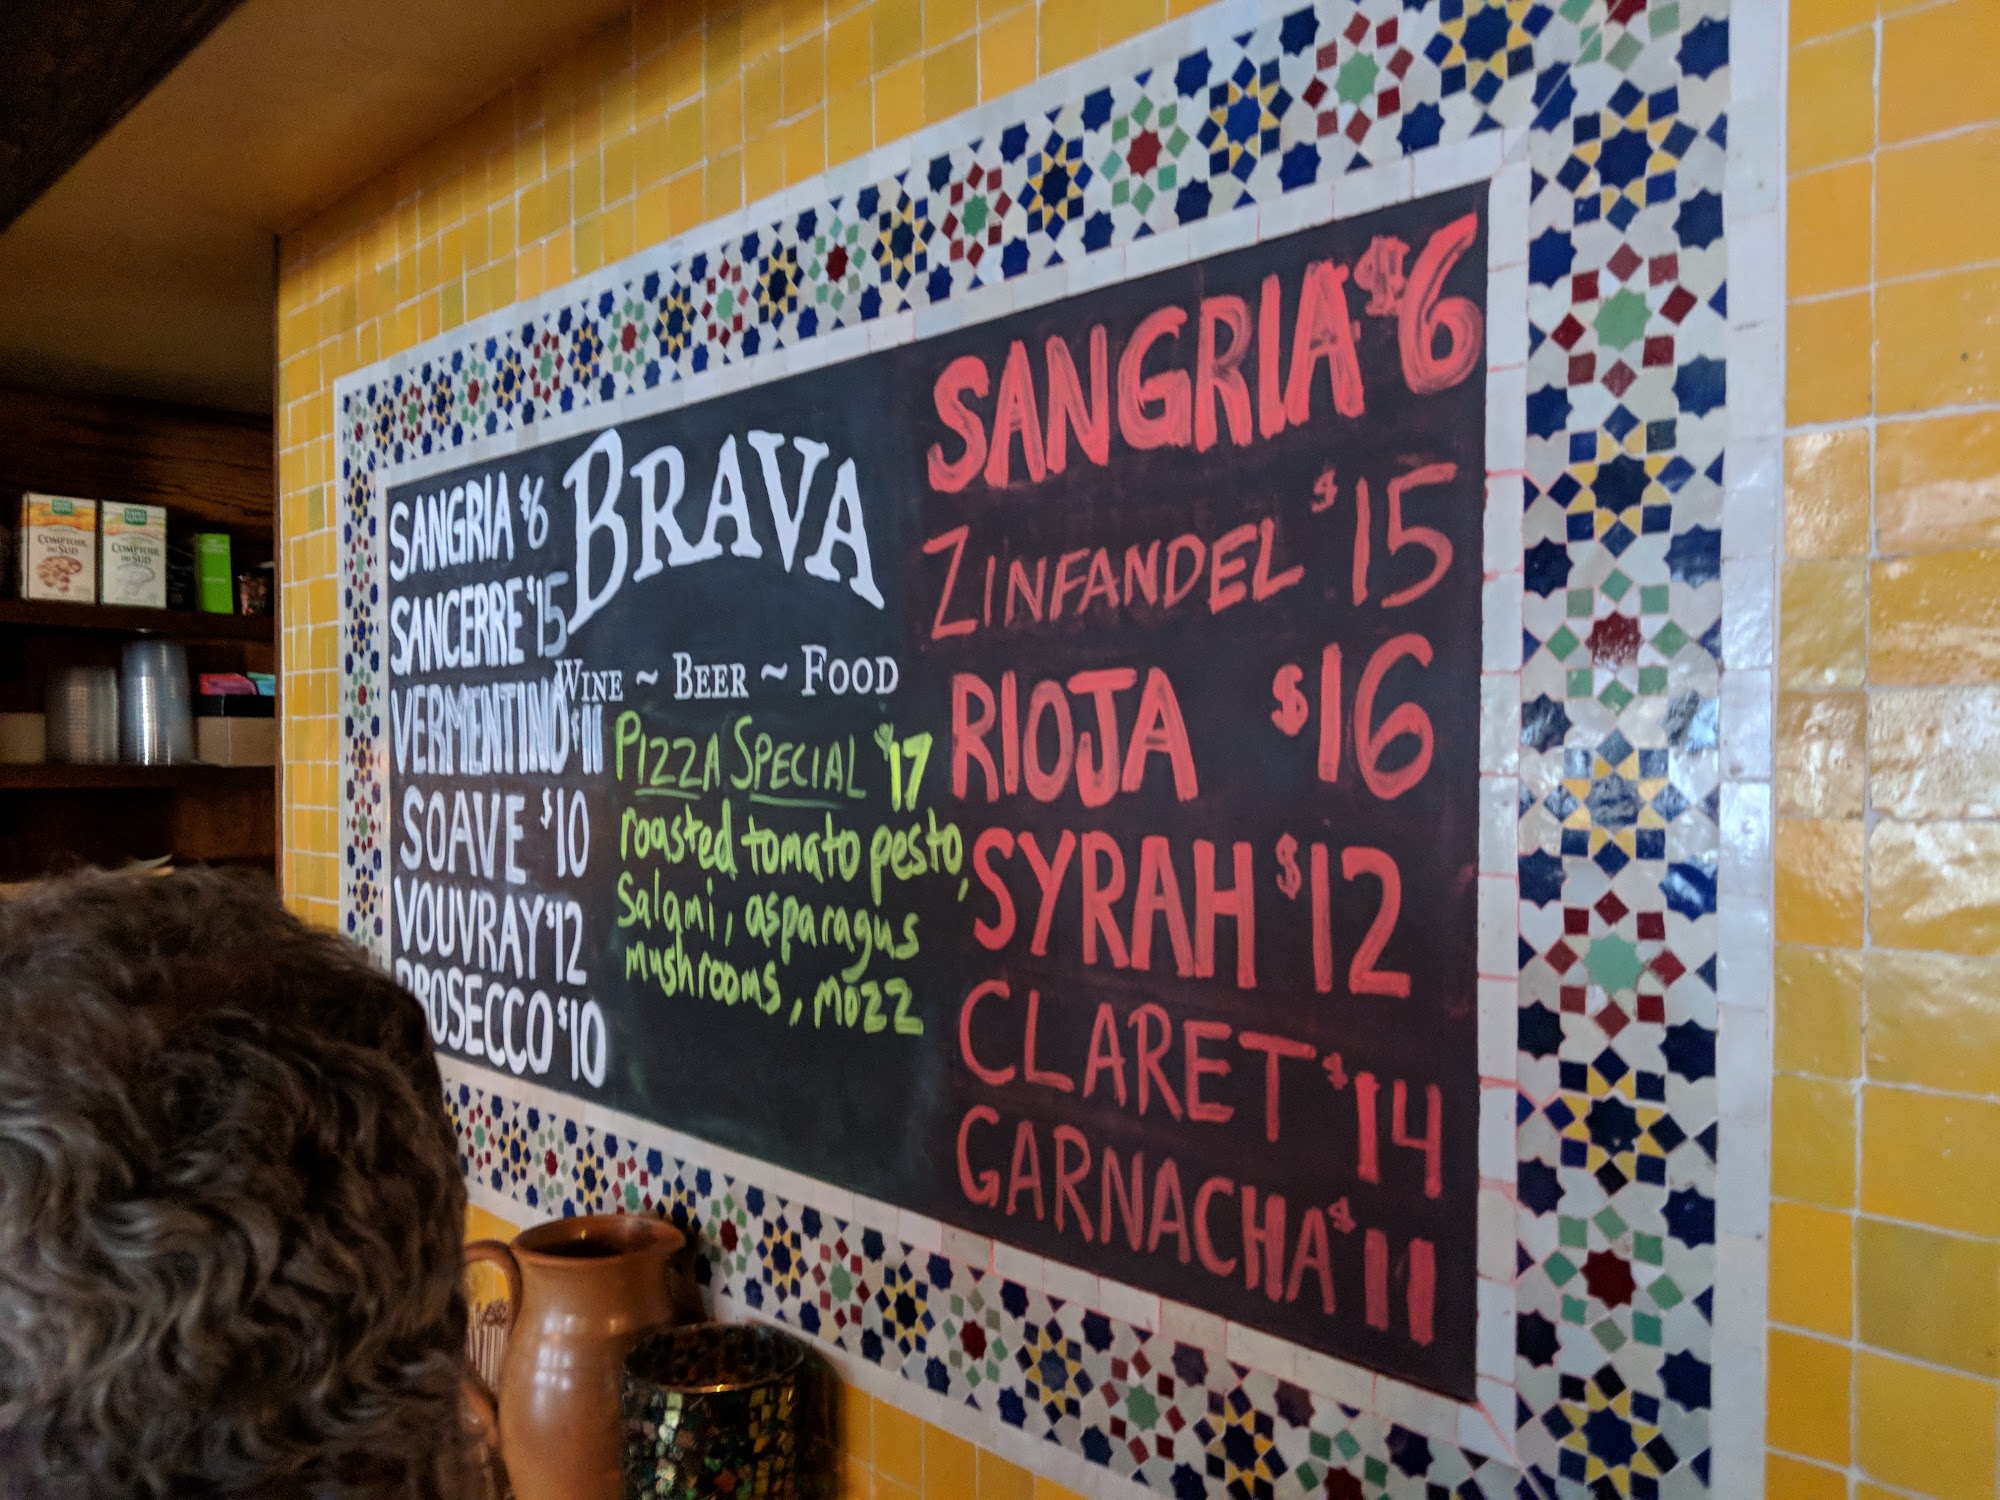 SANGRIA $6
SANCERRE $15
VERMENTINO $11
SOAVE $10
VOUVRAY $12
PROSECCO $10
BRAVA
WINE ~ BEER ~ FOOD
PIZZA SPECIAL $17
roasted tomato pesto,
salami, asparagus
mushrooms, mozz
SANGRIA $6
ZINFANDEL $15
RIOJA $16
SYRAH $12
CLARET $14
GARNACHA $11
COMPTOIR
DU SUD
COMPTOIR
DU SUD